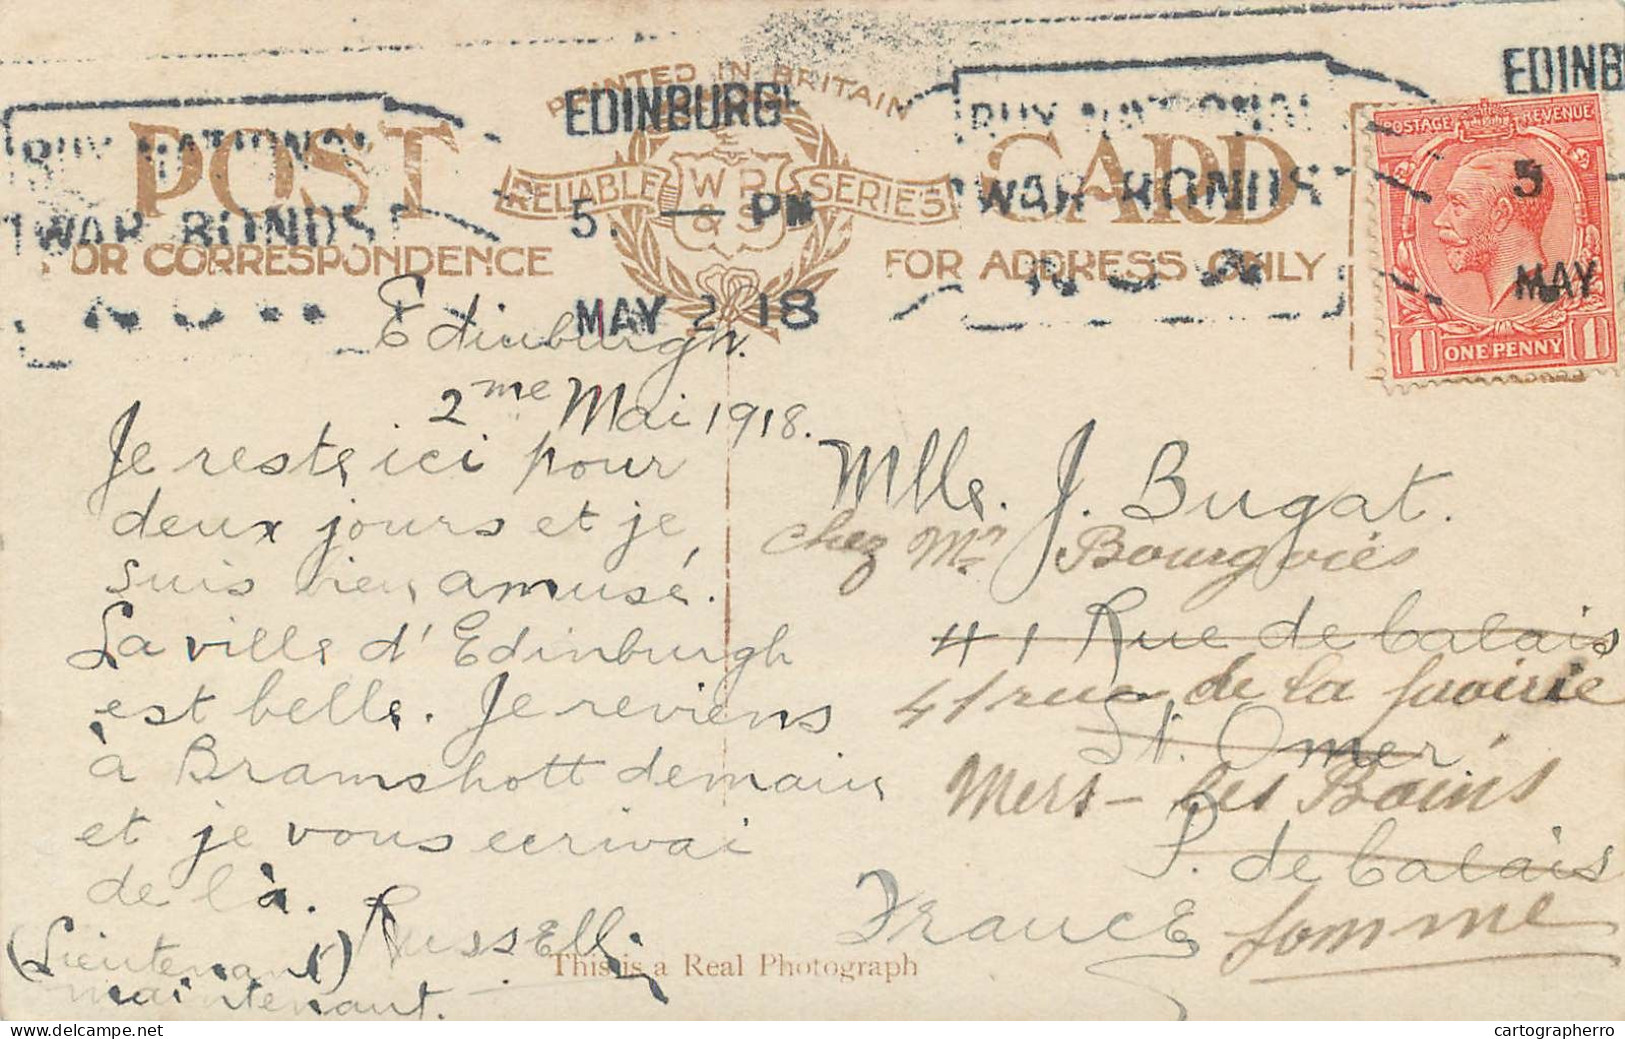 PRINTED IN BRITAIN
POST CARD
RELIABLE WR & S SERIES
FOR CORRESPONDENCE
FOR ADDRESS ONLY
BUY NATIONAL
WAR BONDS
EDINBURGH
5. — PM
MAY 2 18
BUY NATIONAL
WAR BONDS
NOW
EDINB
5
MAY
POSTAGE REVENUE
1 ONE PENNY 1
Edinburgh.
2me Mai 1918.
Je reste ici pour
deux jours et je
suis bien amusé.
La ville d'Edinburgh
est belle. Je reviens
à Bramshott demain
et je vous ecrivai
de là.
Russell
(Lieutenant)
maintenant.
Mlle. J. Bugat.
chez Mr Bourgoies
41 Rue de Calais
41 rue de la prairie
St. Omer
Mers-les Bains
P. de Calais
France
Somme
This is a Real Photograph
cartographerro